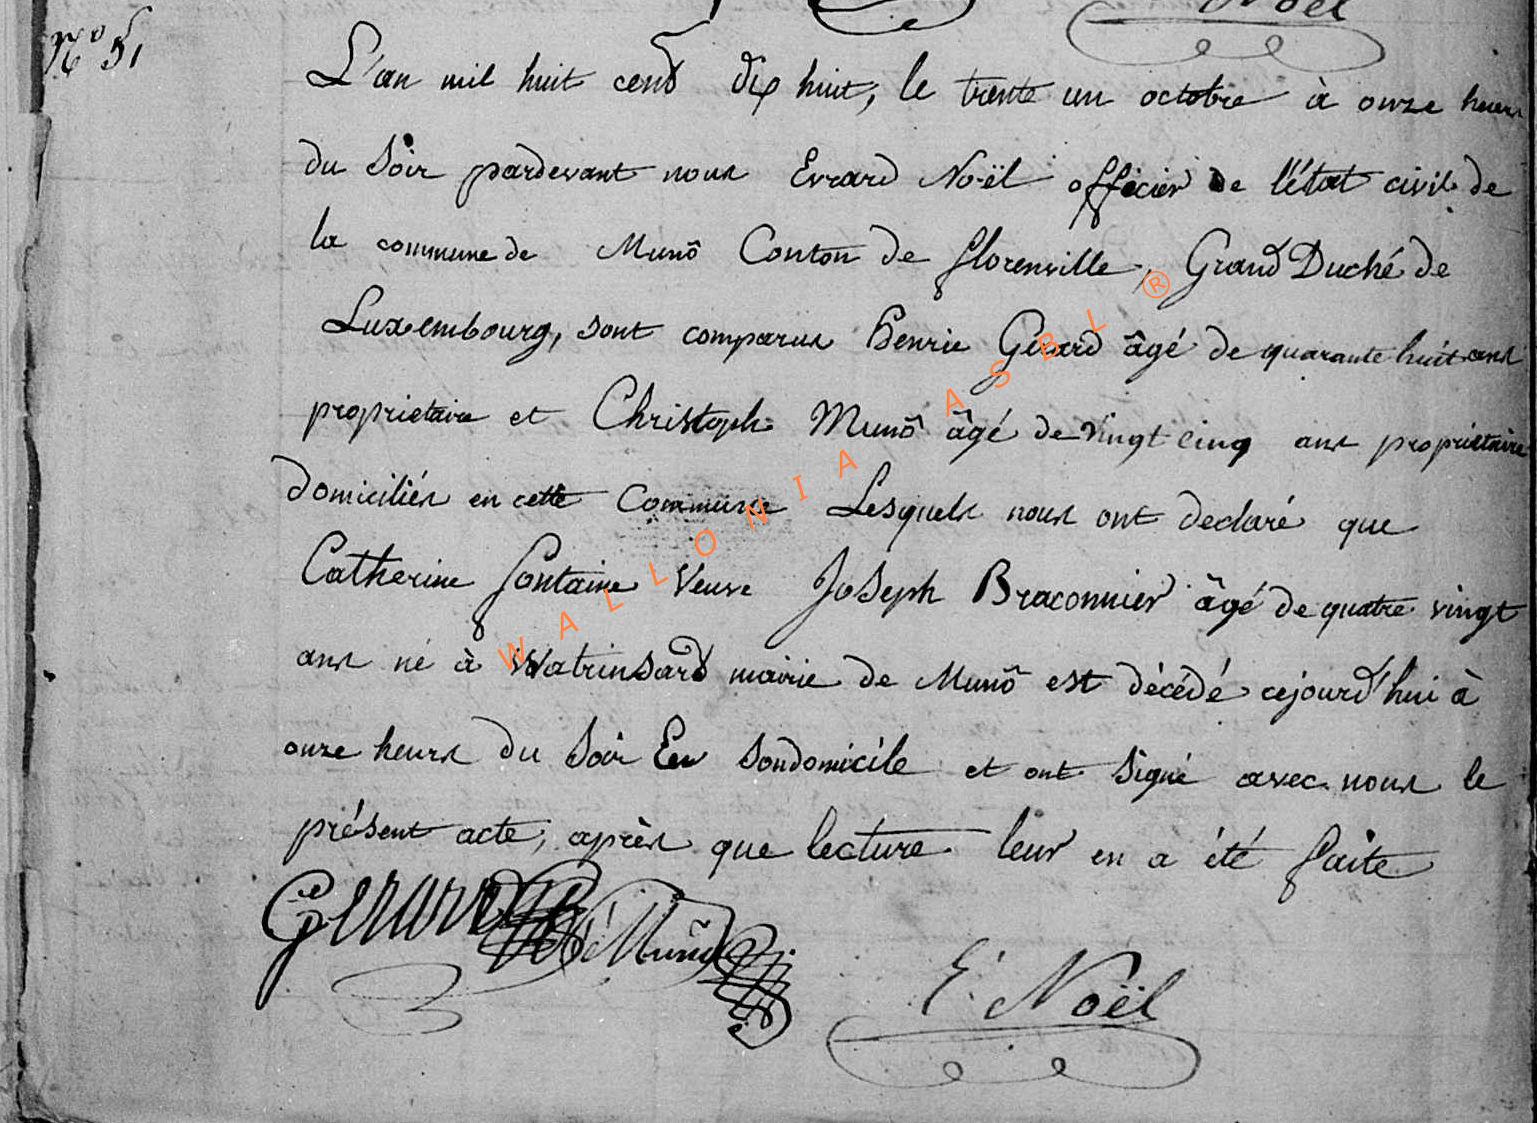 Noël
N° 51
L'an mil huit cent dix huit, le trente un octobre à onze heures
du Soir pardevant nous Evrard Noël officier de l'état civil de
la commune de Munô Conton de florenville, Grand Duché de
Luxembourg, sont comparus henrie Gerard âgé de quarante huit ans
proprietaire et Christoph Munô âgé de vingt cinq ans proprietaire
domiciliés en cette Commune Lesquels nous ont declaré que
Catherine fontaine Veuve Joseph Braconnier âgé de quatre vingt
ans né à Watrinsard mairie de Munô est décédé cejourd'hui à
onze heurs du Soir En sondomicile et ont signé avec nous le
présent acte, après que lecture leur en a été faite
Gerard Munô
E. Noël
WALLONIA ASBL ®